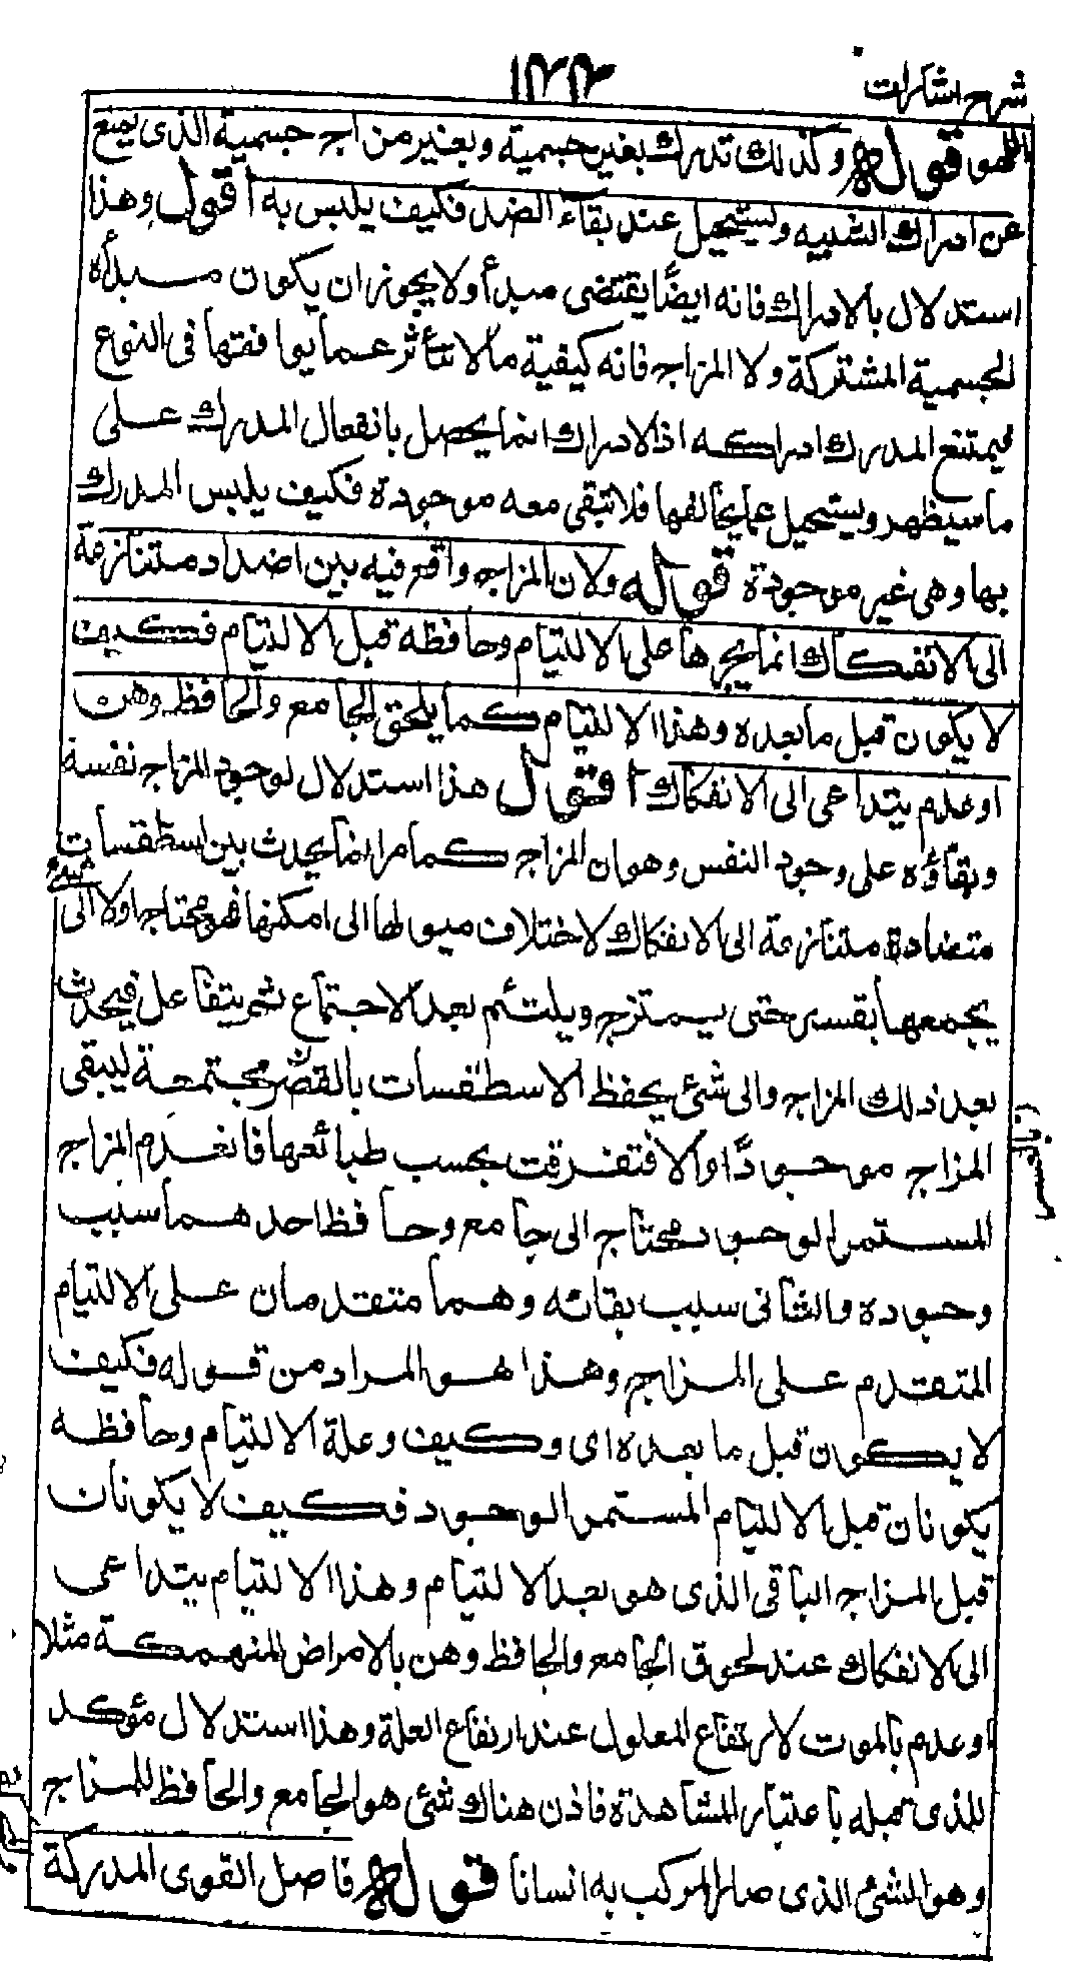 شرح اشارات
١٢٣
بالطبع قوله وكذلك تدرك بغير جسمية وبغير مزاج جسمية الذى يمنع
عن ادراك الشبيه ويستحيل عند بقاء الضد فكيف يلبس به اقول وهذا
استدلال بالادراك فانه ايضًا يقتضى مبدأ ولا يجوز ان يكون مبدأه
الجسمية المشتركة ولا المزاج فانه كيفية ما لا تتأثر عما يوافقها فى النوع
فيمتنع المدرك ادراكه اذ الادراك انما يحصل بانفعال المدرك على
ما سيظهر ويستحيل عما يخالفها فلا تبقى معه موجودة فكيف يلبس المدرك
بها وهى غير موجودة قوله ولان المزاج واقع فيه بين اضداد متنازعة
الى الانفكاك انما يجبرها على الالتيام وحافظه قبل الالتيام فكيف
لا يكون قبل ما بعده وهذا الالتيام كما يلحق الجامع والحافظ وهن
او عدم يتداعى الى الانفكاك اقول هذا استدلال لوجود المزاج نفسه
وبقاؤه على وجود النفس وهو ان المزاج كما مر انما يحدث بين اسطقسات
متضادة متنازعة الى الانفكاك لاختلاف ميولها الى امكنها فهو محتاج اولا الى
شئ
يجمعها بقسر حتى يمتزج ويلتئم بعد الاجتماع ثم يتفاعل فيحدث
بعد ذلك المزاج والى شئ يحفظ الاسطقسات بالقصر مجتمعة ليبقى
المزاج موجودًا والا فتفرقت بحسب طبائعها فانعدم المزاج
المستمر الوجود محتاج الى جامع وحافظ احدهما سبب
وجوده والثانى سبب بقائه وهما متقدمان على الالتيام
المتقدم على المزاج وهذا هو المراد من قوله فكيف
لا يكون قبل ما بعده اى وكيف وعلة الالتيام وحافظه
يكونان قبل الالتيام المستمر الوجود فكيف لا يكونان
قبل المزاج الباقى الذى هو بعد الالتيام وهذا الالتيام يتداعى
الى الانفكاك عند لحوق الجامع والحافظ وهن بالامراض المنهكة مثلا
او عدم بالموت لارتفاع المعلول عند ارتفاع العلة وهذا استدلال مؤكد
للذى قبله باعتبار المشاهدة فاذن هناك شئ هو الجامع والحافظ للمزاج
وهو الشئ الذى صار المركب به انسانا قوله فاصل القوى المدركة